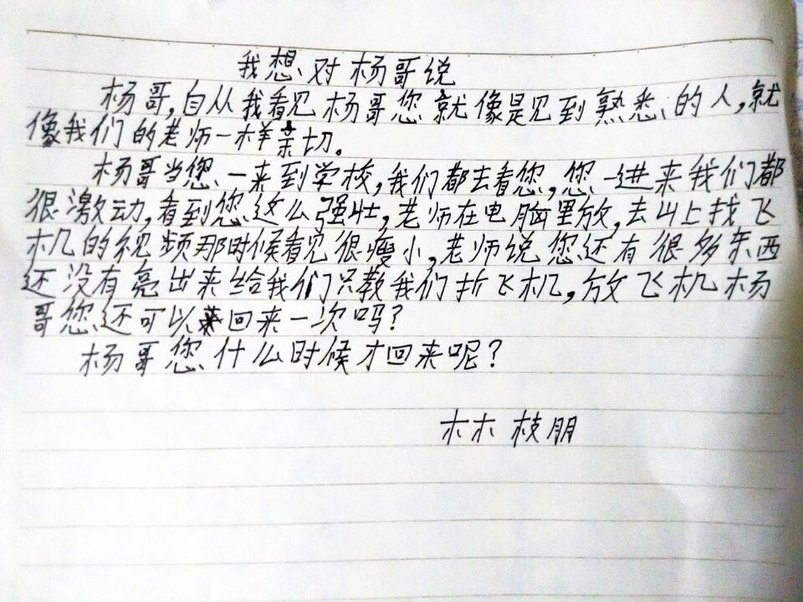 我想对杨哥说
杨哥,自从我看见杨哥您就像是见到熟悉的人,就
像我们的老师一样亲切。
杨哥当您一来到学校,我们都去看您,您一进来我们都
很激动,看到您这么强壮,老师在电脑里放,去山上找飞
机的视频那时候看见很瘦小,老师说您还有很多东西
还没有亮出来给我们只教我们折飞机,放飞机杨
哥您还可以回来一次吗?
杨哥您什么时候才回来呢?
林枝朋